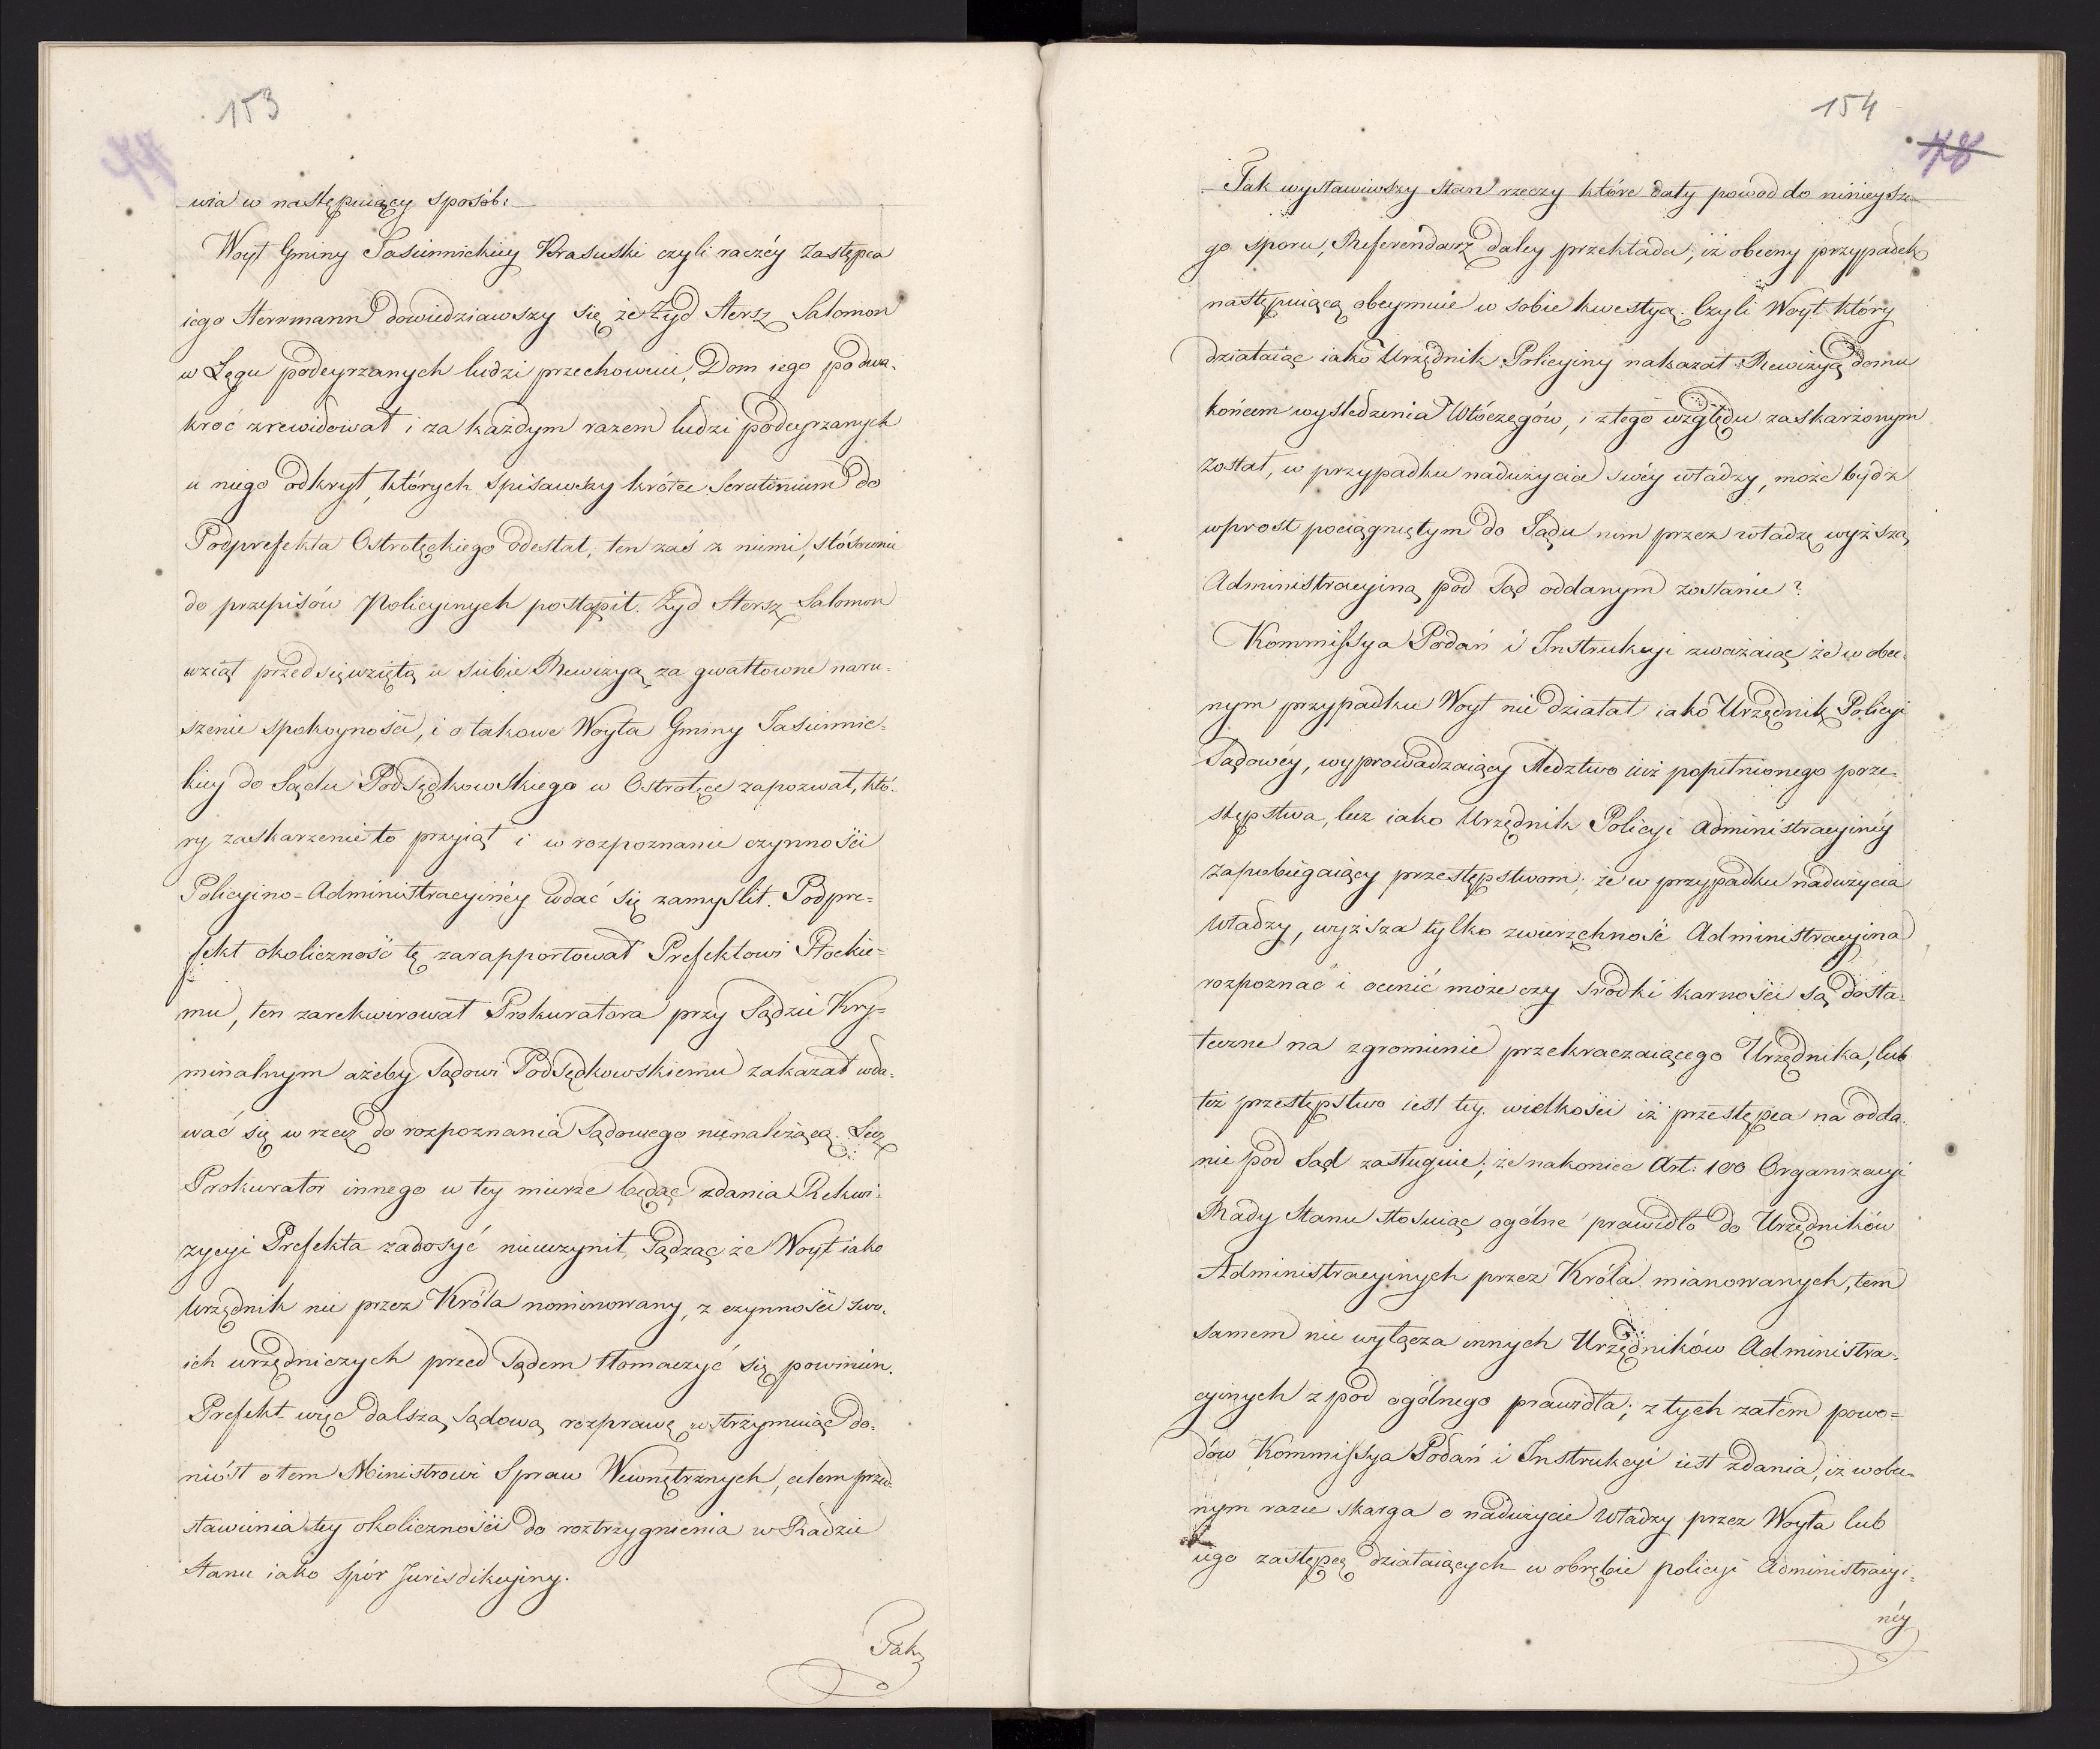 153
77
wia w następuiący sposób:
Woyt Gminy Jasiennickiey Krasuski czyli raczéy Zastępca
iego Herrmann dowiedziawszy się że Żyd Hersz Salomon
w Łęgu podeyrzanych ludzi przechowuie, Dom iego po dwa-
kroć zrewidował i za każdym razem ludzi podeyrzanych
u niego odkrył, których spisawszy krótce Scrutinium do
Podprefekta Ostrołęckiego odesłał, ten zaś z niemi, stósownie
do przepisów Policyinych postąpił. Żyd Hersz Salomon
wziął przedsięwziętą u siebie Rewizyą za gwałtowne naru-
szenie spokoyności, i o takowe Woyta Gminy Jasiennic-
kiey do Sądu Podsędkowskiego w Ostrołęce zapozwał, któ-
ry zaskarzenie to przyiął i w rozpoznanie czynności
Policyino-Administracyinéy wdać się zamyślił. Podpre-
fekt okoliczność tę zarapportował Prefektowi Płockie-
mu, ten zarekwirował Prokuratora przy Sądzie Kry-
minalnym ażeby Sądowi Podsędkowskiemu zakazał wda-
wać się w rzecz do rozpoznania Sądowego nienależącą. Lecz
Prokurator innego w tey mierze będąc zdania Rekwi-
zycyi Prefekta zadosyć nieuczynił, Sądząc że Woyt iako
Urzędnik nie przez Króla nominowany, z czynności swo-
ich urzędniczych przed Sądem tłomaczyć się powinien.
Prefekt więc dalszą Sądową rozprawę wstrzymuiąc do-
niósł o tem Ministrowi Spraw Wewnętrznych, celem przed-
stawienia tey okoliczności do roztrzygnienia w Radzie
Stanu iako Spór Jurisdikcyiny.
Tak
154
78
Tak wystawiwszy Stan rzeczy które dały powod do ninieysze-
go sporu, Referendarz daley przekłada, iż obecny przypadek
następuiącą obeymuie w sobie kwestyą. Czyli Woyt który
działaiąc iako Urzędnik Policyiny nakazał Rewizyą domu
końcem wyśledzenia Włóczęgów, i z tego względu zaskarżonym
został, w przypadku nadużycia swéy władzy, może bydź
wprost pociągniętym do Sądu nim przez władzę wyższą
Administracyiną pod Sąd oddanym zostanie?
Kommissya Podań i Instrukcyi zważaiąc że w obec-
nym przypadku Woyt nie działał iako Urzędnik Policyi
Sądowéy, wyprowadzaiący śledztwo iuż popełnionego prze-
stępstwa, lecz iako Urzędnik Policyi Administracyinéy
zapobiegaiący przestępstwom; że w przypadku nadużycia
Władzy, wyższa tylko zwierzchność Administracyina
rozpoznać i ocenić może czy środki karności są dosta-
teczne na zgromienie przekraczaiącego Urzędnika, lub
też przestępstwo iest tey wielkości iż przestępca na odda-
nie pod Sąd zasługuie; że nakoniec Art: 100 Organizacyi
Rady Stanu stosuiąc ogólne prawidło do Urzędników
Administracyinych przez Króla mianowanych, tem
samem nie wyłącza innych Urzędników Administra-
cyinych z pod ogólnego prawidła; z tych zatem powo-
dów Kommissya Podań i Instrukcyi iest zdania, iż w obec-
nym razie skarga o nadużycie Władzy przez Woyta lub
iego zastępcę działaiących w obrębie policyi Administracyi-
néy